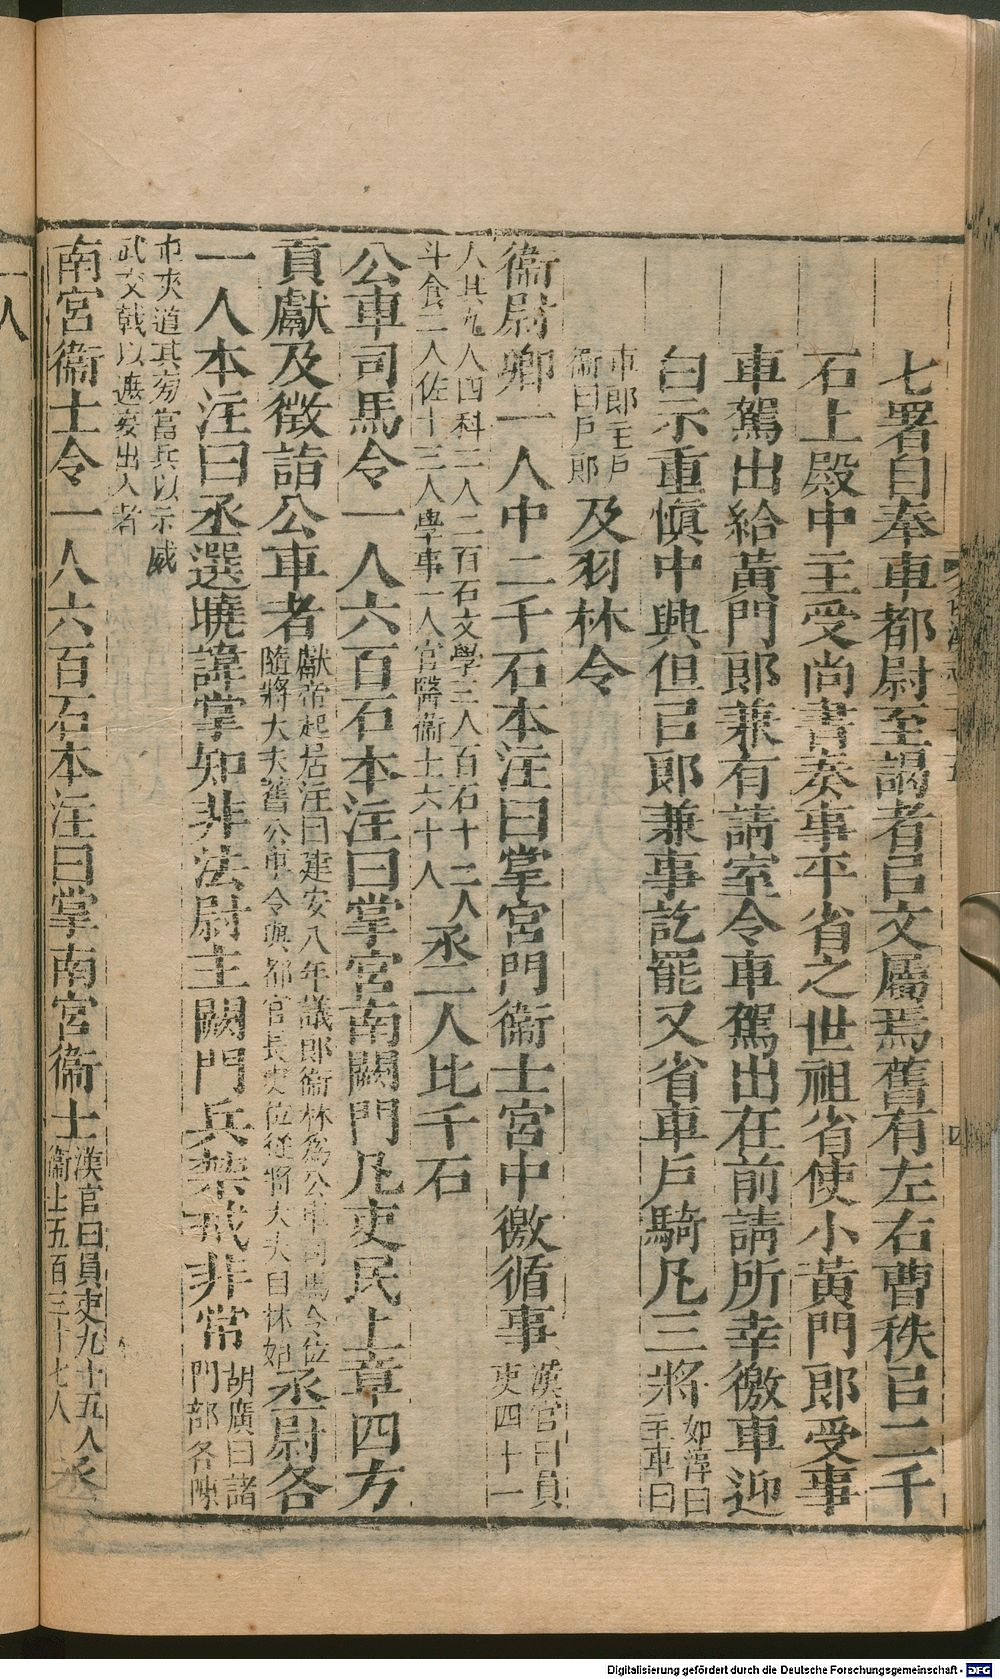 七署自奉車都尉至謁者㠯文屬焉舊有左右曹秩㠯二千
石上殿中主受尚書奏事平省之世祖省使小黃門郎受事
車駕出給黃門郎兼有請室令車駕出在前請所幸徼車迎
白示重慎中興但㠯郎兼事訖罷又省車戶騎凡三將如淳曰主車曰
車郎主戶衞曰戶郎及羽林令
衞尉卿一人中二千石本注曰掌宮門衞士宮中徼循事漢官曰員吏四十一
人其九人四科二人二百石文學三人百石十二人斗食二人佐十三人學事一人官醫衞士六十人丞一人比千石
公車司馬令一人六百石本注曰掌宮南闕門凡吏民上章四方
貢獻及徵詣公車者獻帝起居注曰建安八年議郎衞林爲公車司馬令位隨將大夫舊公車令與都官長史位從將大夫自林始丞尉各
一人本注曰丞選曉諱掌知非法尉主闕門兵禁戒非常胡廣曰諸門部各陳
巿夾道其旁當兵以示威武交戟以遮妄出入者
南宮衞士令一人六百石本注曰掌南宮衞士漢官曰員吏九十五人衞士五百三十七人丞
一人
四
Digitalisierung gefördert durch die Deutsche Forschungsgemeinschaft - DFG